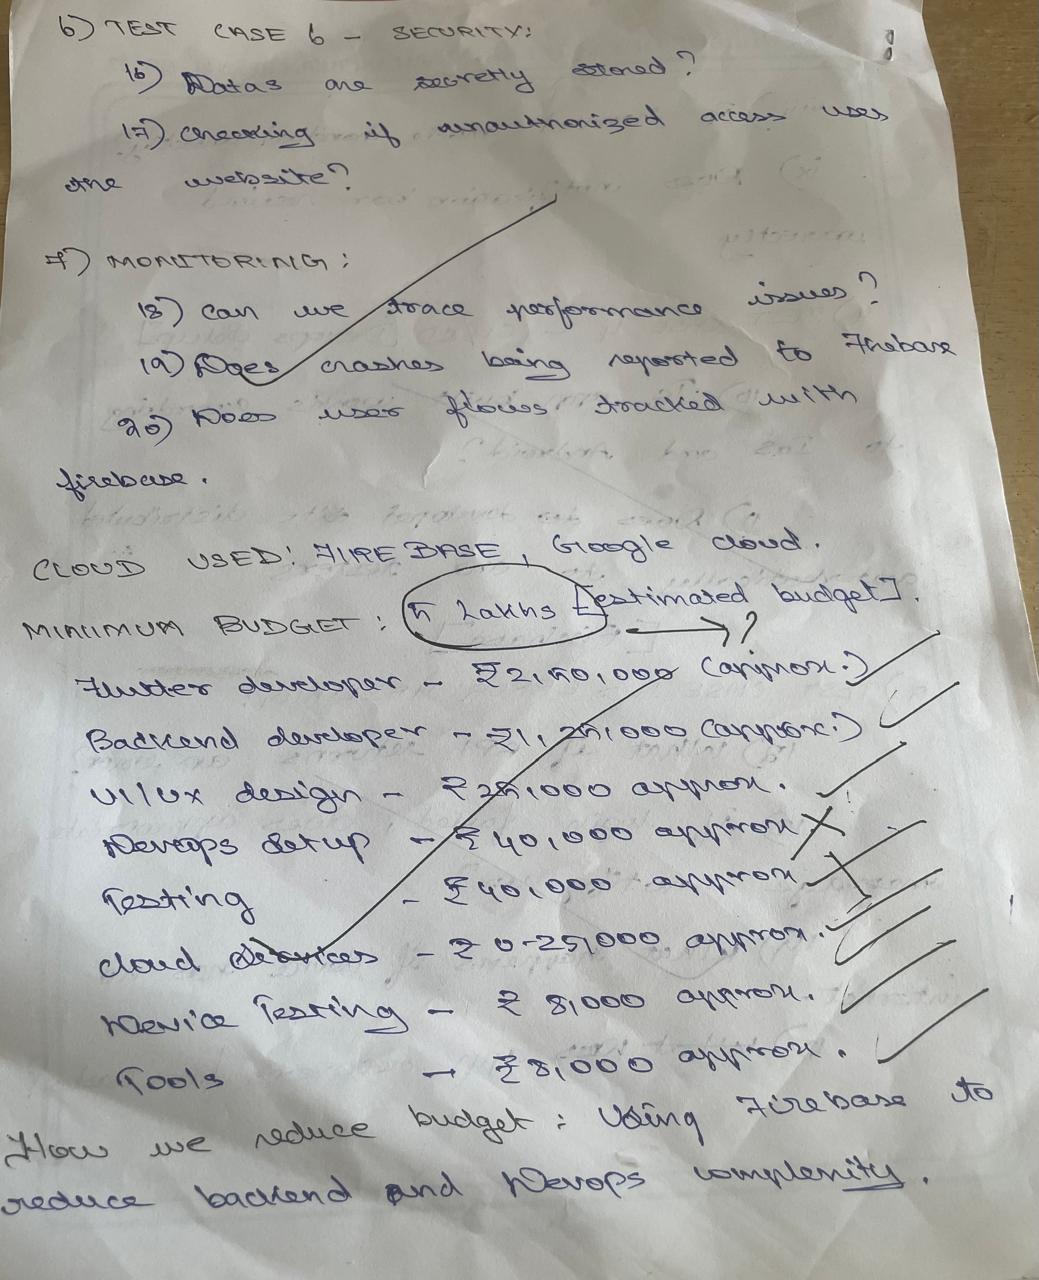 6) TEST CASE 6 - SECURITY:
16) Datas are secretly stored?
17) checking if unauthorized access uses
the website?
7) MONITORING:
18) can we trace performance issues?
19) Does crashes being reported to Firebase
20) Does user flows tracked with
firebase.
CLOUD USED: FIREBASE, Google cloud.
MINIMUM BUDGET: 5 Lakhs [estimated budget].
→ ?
Flutter developer - ₹2,50,000 (approx.)
Backend developer - ₹1,25,000 (approx.)
UI/UX design - ₹25,000 approx.
Devops Setup - ₹40,000 approx
Testing - ₹40,000 approx
cloud services - ₹0-25,000 approx.
Device Testing - ₹8,000 approx.
Tools - ₹8,000 approx.
How we reduce budget: Using Firebase to
reduce backend and Devops complexity.